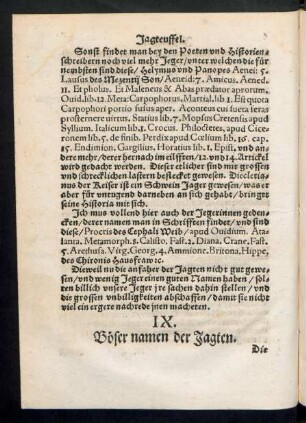 Jagteuffel.
Sonst findet man bey den Poeten und Historien-
schreibern noch viel mehr Jeger/unter welchen die für
nembsten sind diese/ Helymus und Panopes Aenei: 5.
Lausus des Mezentij Son/ Aeneid: 7. Amicus. Aened.
11. Et pholus. Et Malenens & Abas prædator aprorum.
Ouid.lib.12. Meta: Carpophorus. Martial.lib 1. Esi quota
Carpophori portio fusus aper. Aconteus cui sueta feras
prosternere uirtus. Statius lib.7. Mopsus Cretensis apud
Syllium. Italicum lib.2. Crocus. Philoctetes, apud Cice-
ronem lib.5. de finib. Perdix apud Cælium lib. 16. cap.
85. Endimion. Gargilius, Horatius lib.1. Epist. und an-
dere mehr/ derer hernach im eilfften/12.und 14. Artickel
wird gedacht werden. Dieser etlicher sind mit grossen
und schrecklichen lastern befleckt gewesen. Diocletia-
nus der Keiser ist ein Schwein Jager gewesen/ was er
aber für untugend darneben an sich gehabt/ bringt
seine Historia mit sich.
Ich mus vollend hier auch der Jegerinnen geden-
cken/ derer namen man in Schrifften findet/ und sind
diese/ Procris des Cephali Weib/ apud Ouidium. Ata-
lanta. Metamorph.8. Calisto. Fast.2. Diana. Crane. Fast.
5. Arethusa. Virg. Georg.4. Ammione. Britona, Hippe.
des Chironis Hausfraw ꝛc.
Dieweil nu die anfaher der Jagten nicht gut gewe-
sen/ und wenig Jeger einen guten Namen haben/ sol-
ten billich unsere Jeger jre sachen dahin stellen/ und
die grossen unbilligkeiten abschaffen/ damit sie nicht
viel ein ergere nachrede jnen macheten.
IX.
Böser namen der Jagten.
Die